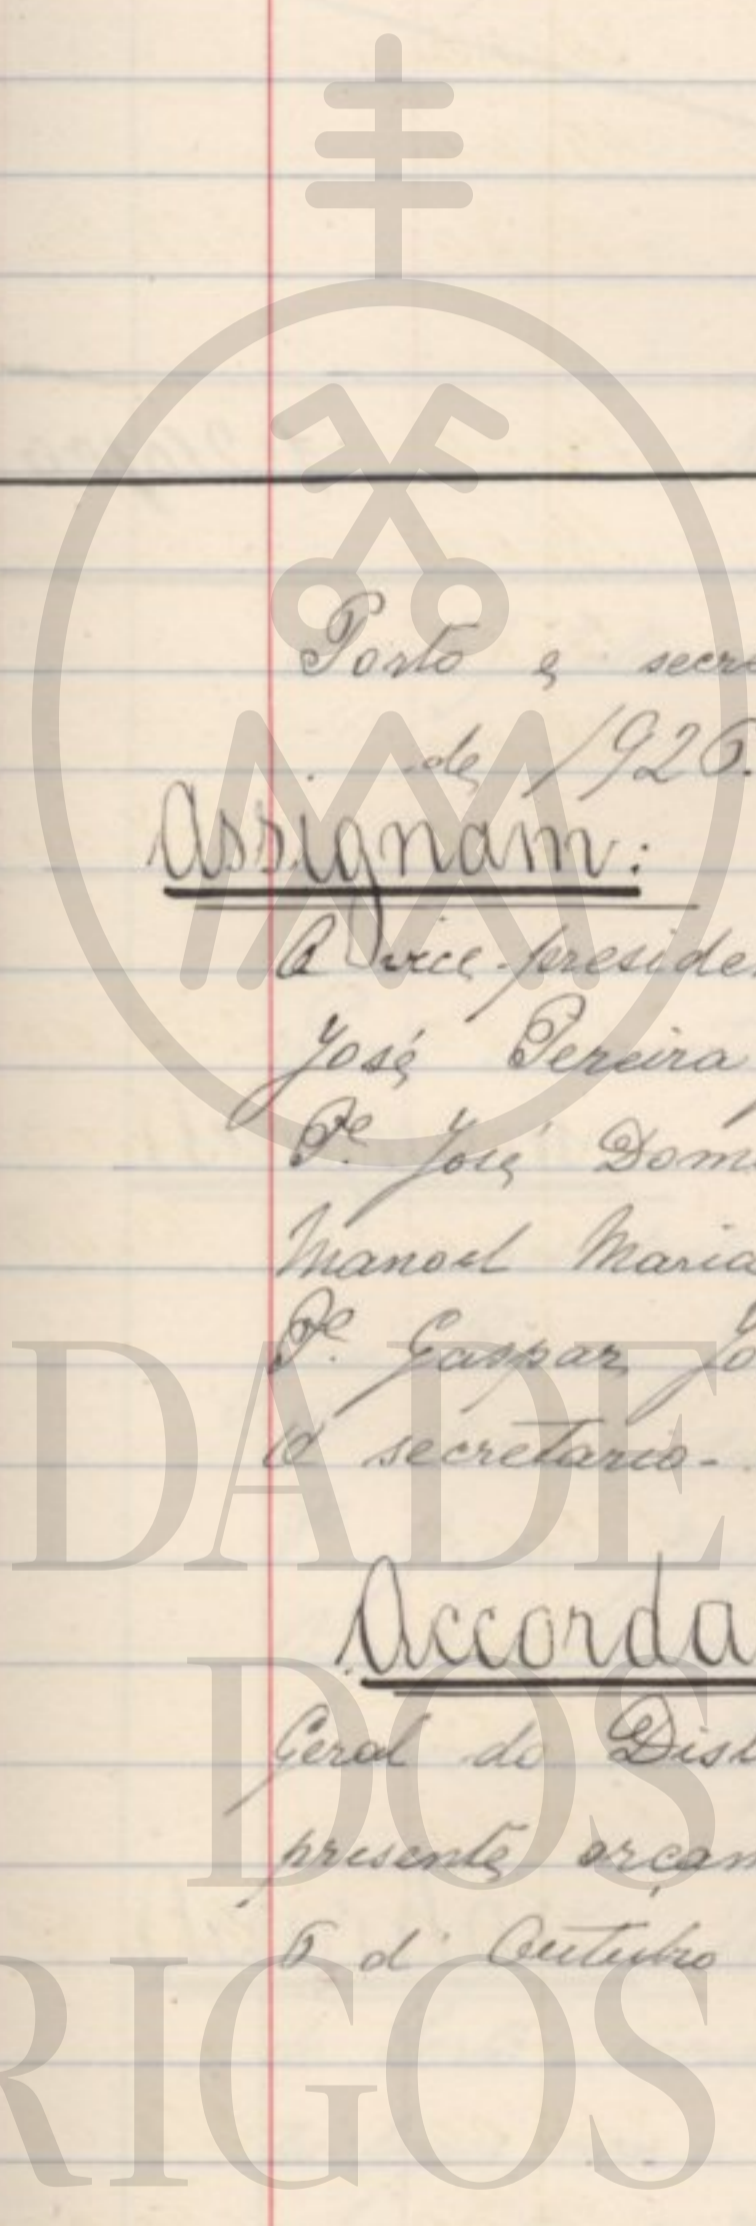 Porto e secre
de 1926.
Assignam:
O vice-preside
José Pereira
P.e José Dom
Manoel Maria
P.e Gaspar Jo
O secretario-
Accorda
Geral do Dist
presente orçam
d' Outubro
DADE
DOS
RIGOS